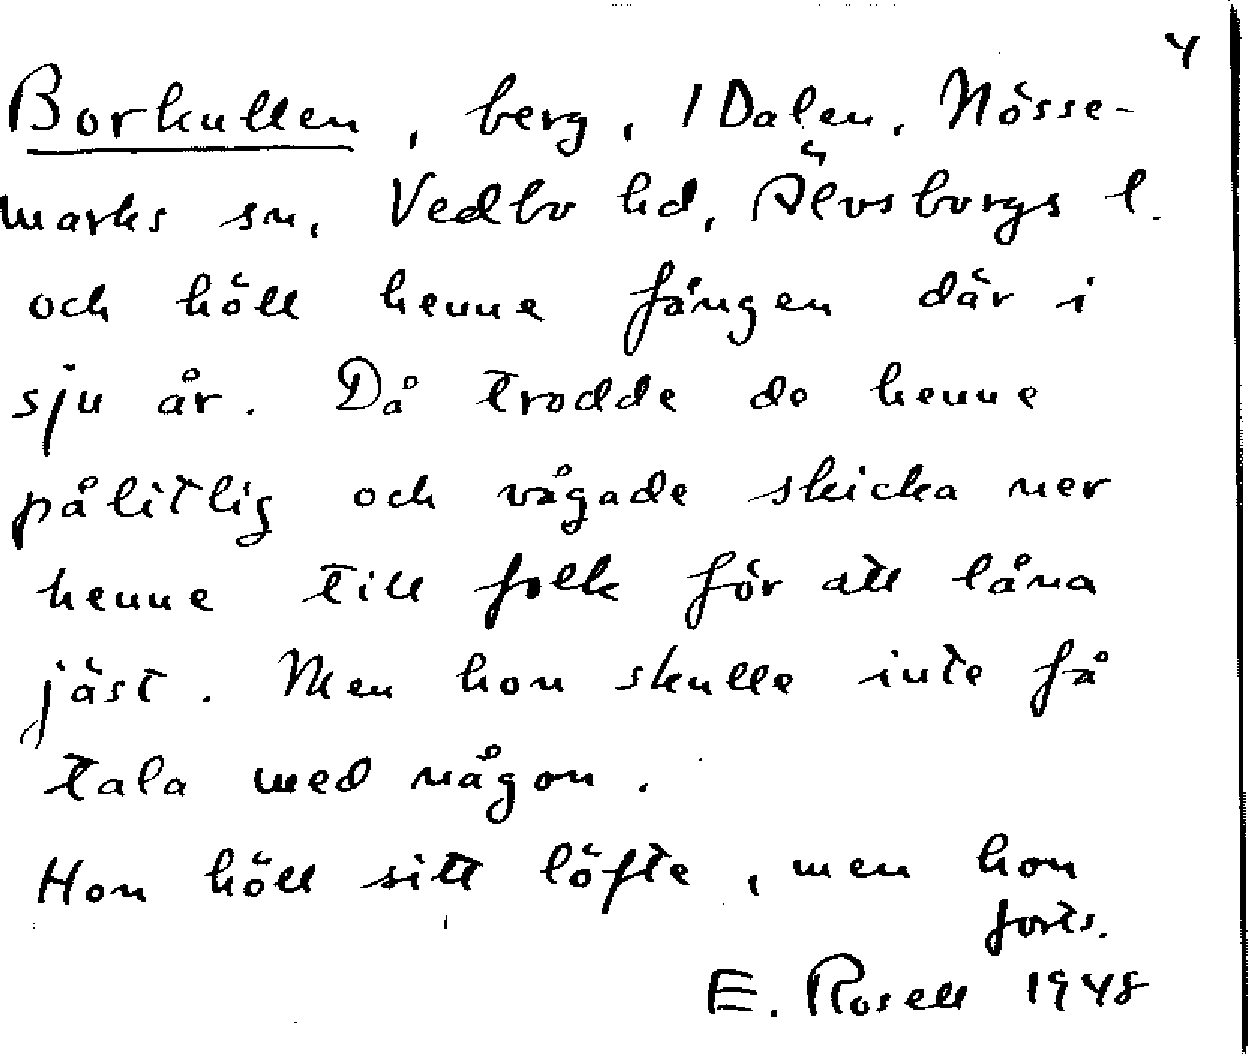 4
Borkullen, berg, 1 Dalen, Nösse-
marks sn, Vedbo hd, Älvsborgs l.
och höll henne fången där i
sju år. Då trodde de henne
pålitlig och vågade skicka ner
henne till folk för att låna
jäst. Men hon skulle inte få
tala med någon.
Hon höll sitt löfte, men hon
forts.
E. Rosell 1948